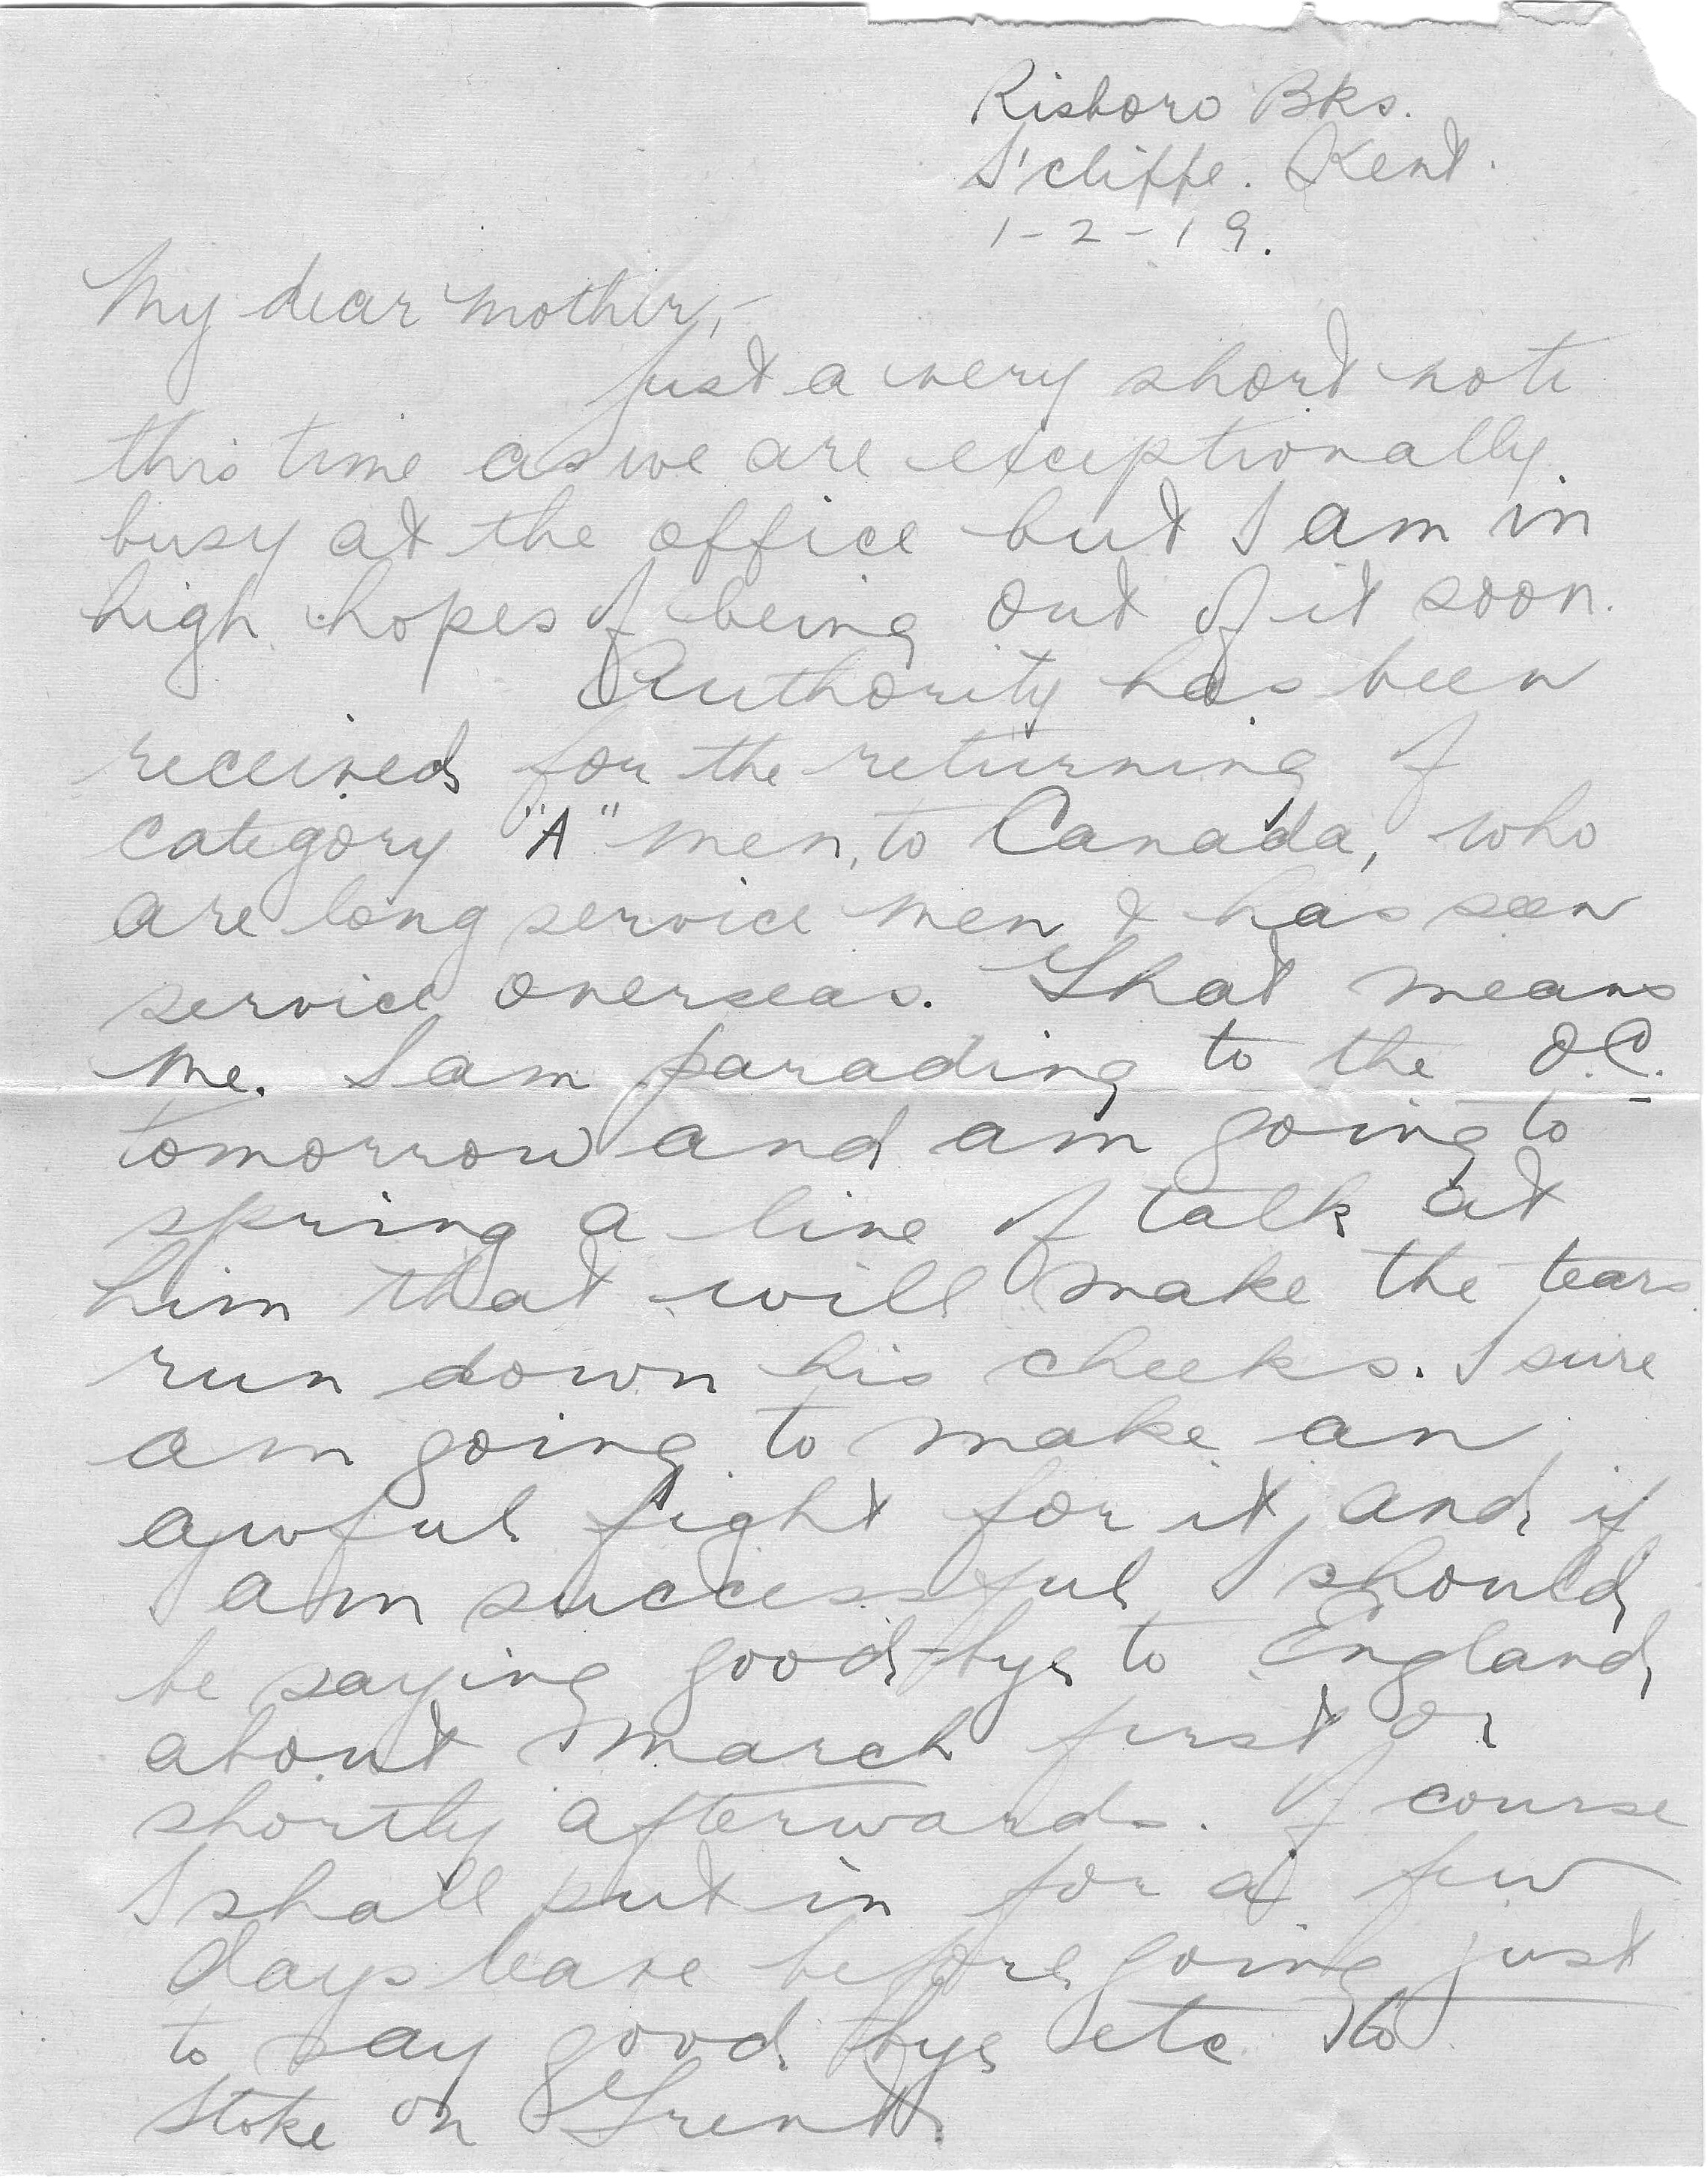 Risboro Bks.
S'cliffe. Kent.
1-2-19.
My dear mother,-
Just a very short note
this time as we are exceptionally
busy at the office but I am in
high hopes of being out of it soon.
Authority has been
received for the returning of
category "A" men, to Canada, who
are long service men & has seen
service overseas. That means
me. I am parading to the O.C.
tomorrow and am going to
spring a line of talk at
him that will make the tears
run down his cheeks. I sure
am going to make an
awful fight for it, and if
I am successful I should
be saying good-bye to England
about March first or
shortly afterwards. Of course
I shall put in for a few
days leave before going just
to say good bye etc to
Stoke on Trent.